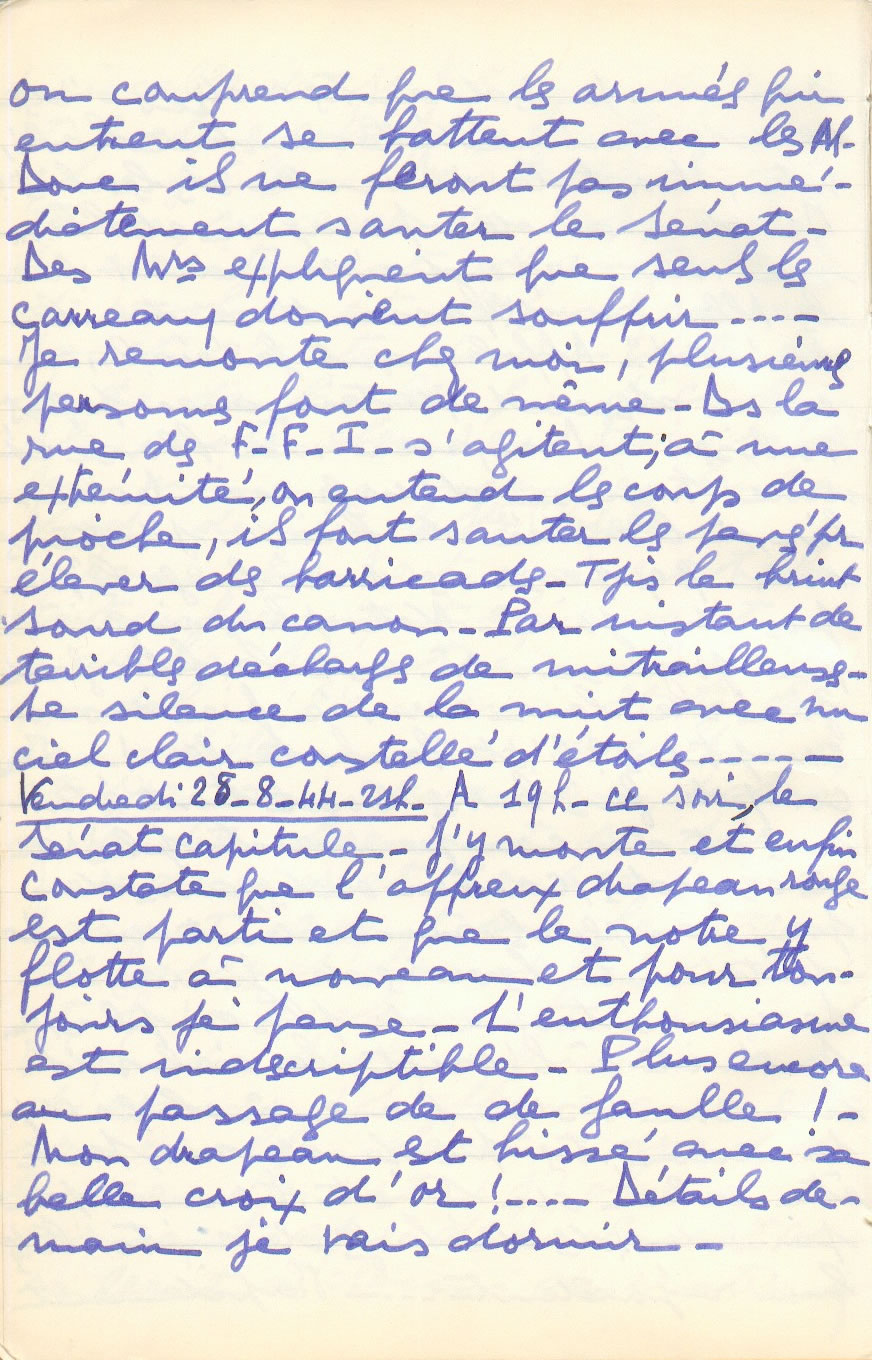 on comprend que les armées qui
entrent se battent avec les Al-
Donc ils ne feront pas immé-
diatement sauter le Sénat-
Des Mrs expliquent que seuls les
carreaux doivent souffrir ----
Je remonte chez moi, plusieurs
personnes font de même - Ds la
rue des F-F-I- s'agitent, à une
extrémité, on entend les coups de
pioche, ils font sauter les pavés pr
élever des barricades - Tjrs le bruit
sourd du canon - Par instant de
terribles décharges de mitrailleuses -
Le silence de la nuit avec un
ciel clair constellé d'étoiles -----
Vendredi 25-8-44-21h- A 19h- ce soir, le
Sénat capitule - J'y monte et enfin
constate que l'affreux drapeau rouge
est parti et que le notre y
flotte à nouveau et pour tou-
jours je pense - L'enthousiasme
est indescriptible - Plus encore
au passage de de Gaulle ! -
Mon drapeau est hissé avec sa
belle croix d'or ! ---- Détails de-
main je vais dormir -